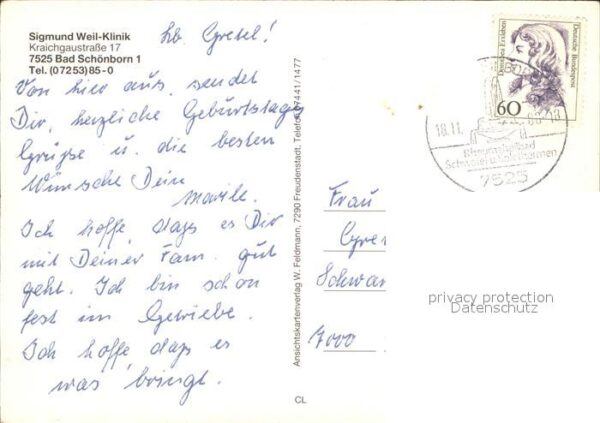 Sigmund Weil-Klinik
Kraichgaustraße 17
7525 Bad Schönborn 1
Tel. (07253) 85-0
lb. Gretel!
Von hier aus, sendet
Dir, herzliche Geburtstags
Grüsse u. die besten
Wünsche Dein
Ich hoffe dass es Dir
mit Deiner Fam. gut
geht. Ich bin schon
fest im Getriebe.
Ich hoffe dass es
was bringt.
Ansichtskartenverlag W. Feldmann, 7290 Freudenstadt, Telefon 07441/1477
CL
Dorothea Erxleben
Deutsche Bundespost
60
18.11.
7525
Frau
Gre
Schwa
7000
privacy protection
Datenschutz